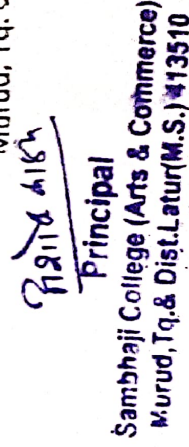 Murud, Tq. &
Principal
Sambhaji College (Arts & Commerce)
Murud,Tq.& Dist.Latur(M.S.) 413510